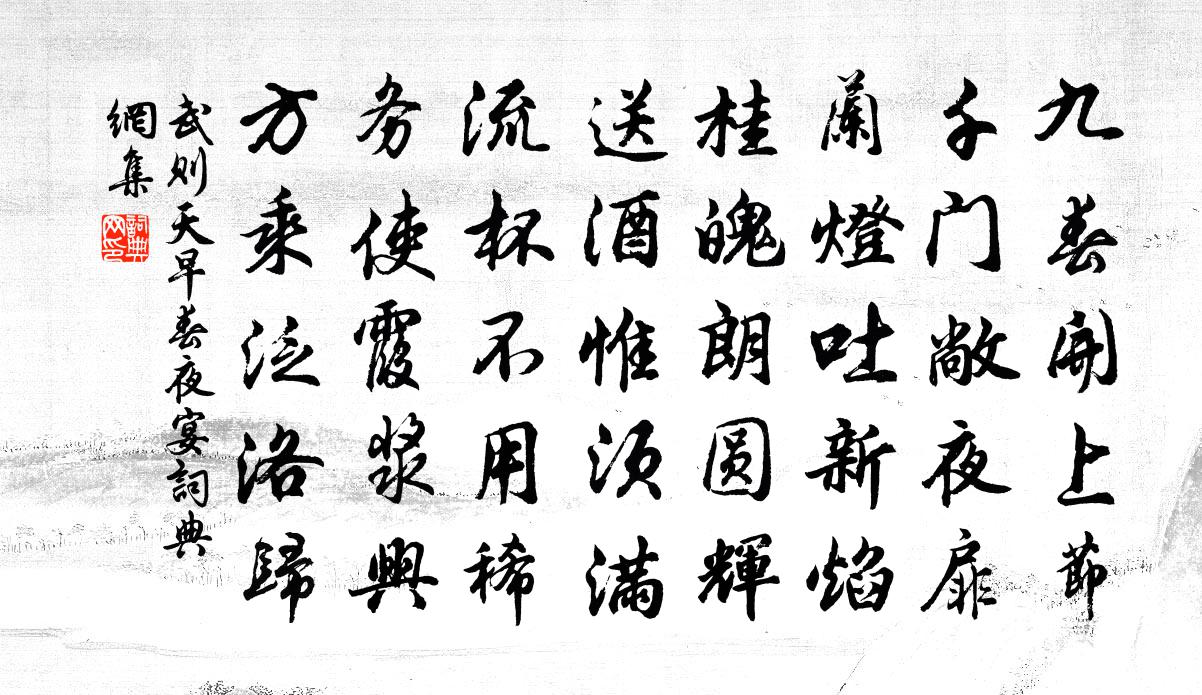 九春開上節
千门敞夜扉
蘭燈吐新焰
桂魄朗圆輝
送酒惟须满
流杯不用稀
务使霞漿興
方乘泛洛歸
武则天早春夜宴詞典
網集
詞典
网印